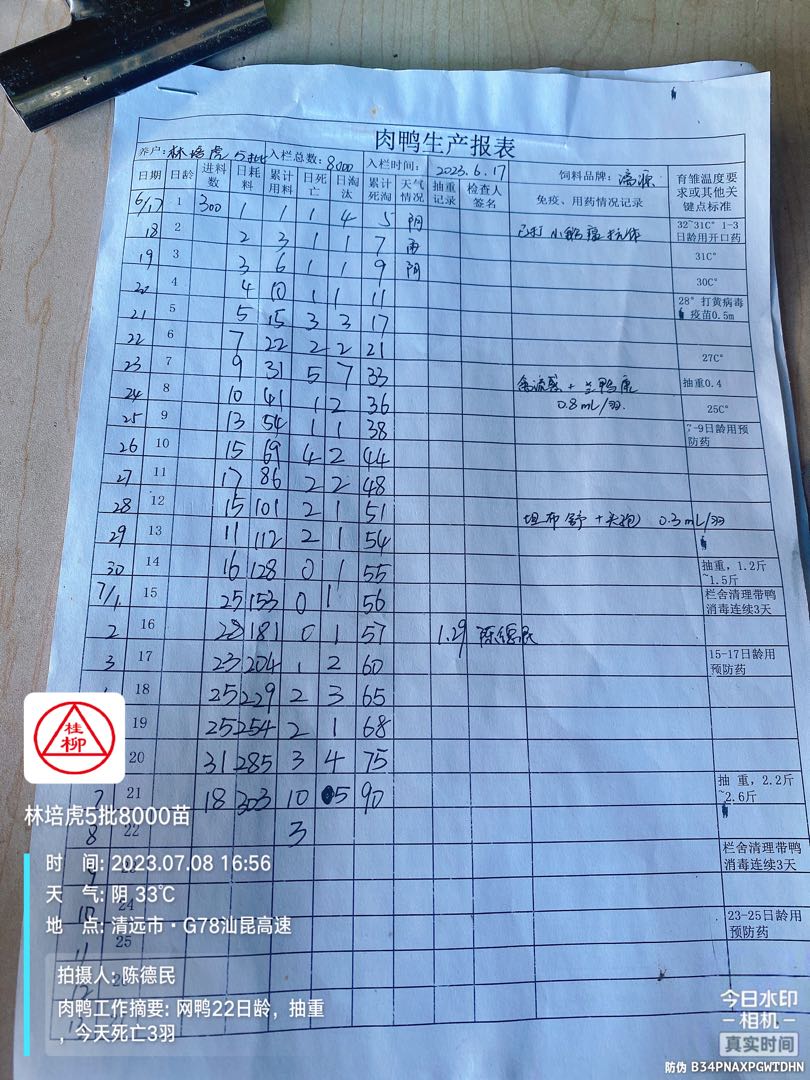 肉鸭生产报表
养户:林培虎 5批 入栏总数:8000 入栏时间: 2023.6.17 饲料品牌:
日期 日龄 进料数 日耗料 累计用料 日死亡 日淘汰 累计死淘 天气情况 抽重记录 检查人签名 免疫、用药情况记录 育雏温度要求或其他关键点标准
6/17 1 300 1 1 1 4 5 阴 32~31C° 1-3日龄用开口药
18 2 2 3 1 1 7 雨 已打小鹅瘟抗体
19 3 3 6 1 1 9 阴 31C°
20 4 4 10 1 1 11 30C°
21 5 5 15 3 3 17 28° 打黄病毒疫苗0.5m
22 6 7 22 2 2 21
23 7 9 31 5 7 33 27C°
24 8 10 41 1 2 36 禽流感+ 0.8mL/羽. 抽重0.4
25 9 13 54 1 1 38 25C°
26 10 15 69 4 2 44 7-9日龄用预防药
27 11 17 86 2 2 48
28 12 15 101 2 1 51
29 13 11 112 2 1 54 坦布舒+头孢 0.3mL/羽
30 14 16 128 0 1 55 抽重, 1.2斤~1.5斤
7/1. 15 25 153 0 1 56 栏舍清理带鸭消毒连续3天
2 16 28 181 0 1 57 1.29 陈德民
3 17 23 204 1 2 60 15-17日龄用预防药
18 25 229 2 3 65
19 25 254 2 1 68
20 31 285 3 4 75
7 21 18 303 10 5 90 抽 重, 2.2斤~2.6斤
8 22 3
栏舍清理带鸭消毒连续3天
10 24 23-25日龄用预防药
11 25
桂柳
林培虎5批8000苗
时 间: 2023.07.08 16:56
天 气: 阴,33℃
地 点: 清远市·G78汕昆高速
拍摄人: 陈德民
肉鸭工作摘要: 网鸭22日龄，抽重
，今天死亡3羽
今日水印
-相机-
真实时间
防伪 B34PNAXPGWTDHN